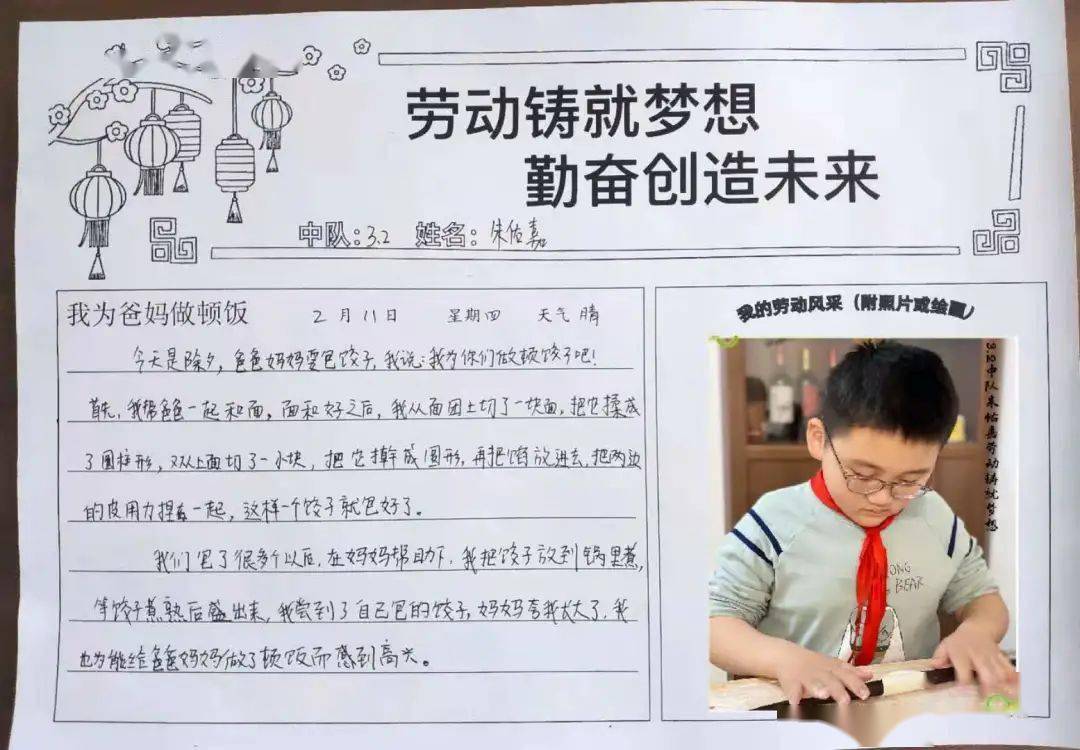 劳动铸就梦想
勤奋创造未来
中队：3.2 姓名：朱佑嘉
我为爸妈做顿饭 2月11日 星期四 天气 晴
今天是除夕，爸爸妈妈要包饺子，我说：我为你们做顿饺子吧！
首先，我帮爸爸一起和面，面和好之后，我从面团上切了一块面，把它揉成
了圆柱形，又从上面切了一小块，把它擀成圆形，再把馅放进去，把两边
的皮用力捏在一起，这样一个饺子就包好了。
我们包了很多个以后，在妈妈帮助下，我把饺子放到锅里煮，
等饺子煮熟后盛出来，我尝到了自己包的饺子，妈妈夸我长大了，我
也为能给爸爸妈妈做了顿饭而感到高兴。
我的劳动风采（附照片或绘画）
中队朱佑嘉劳动铸就梦想
ONG
BEAR